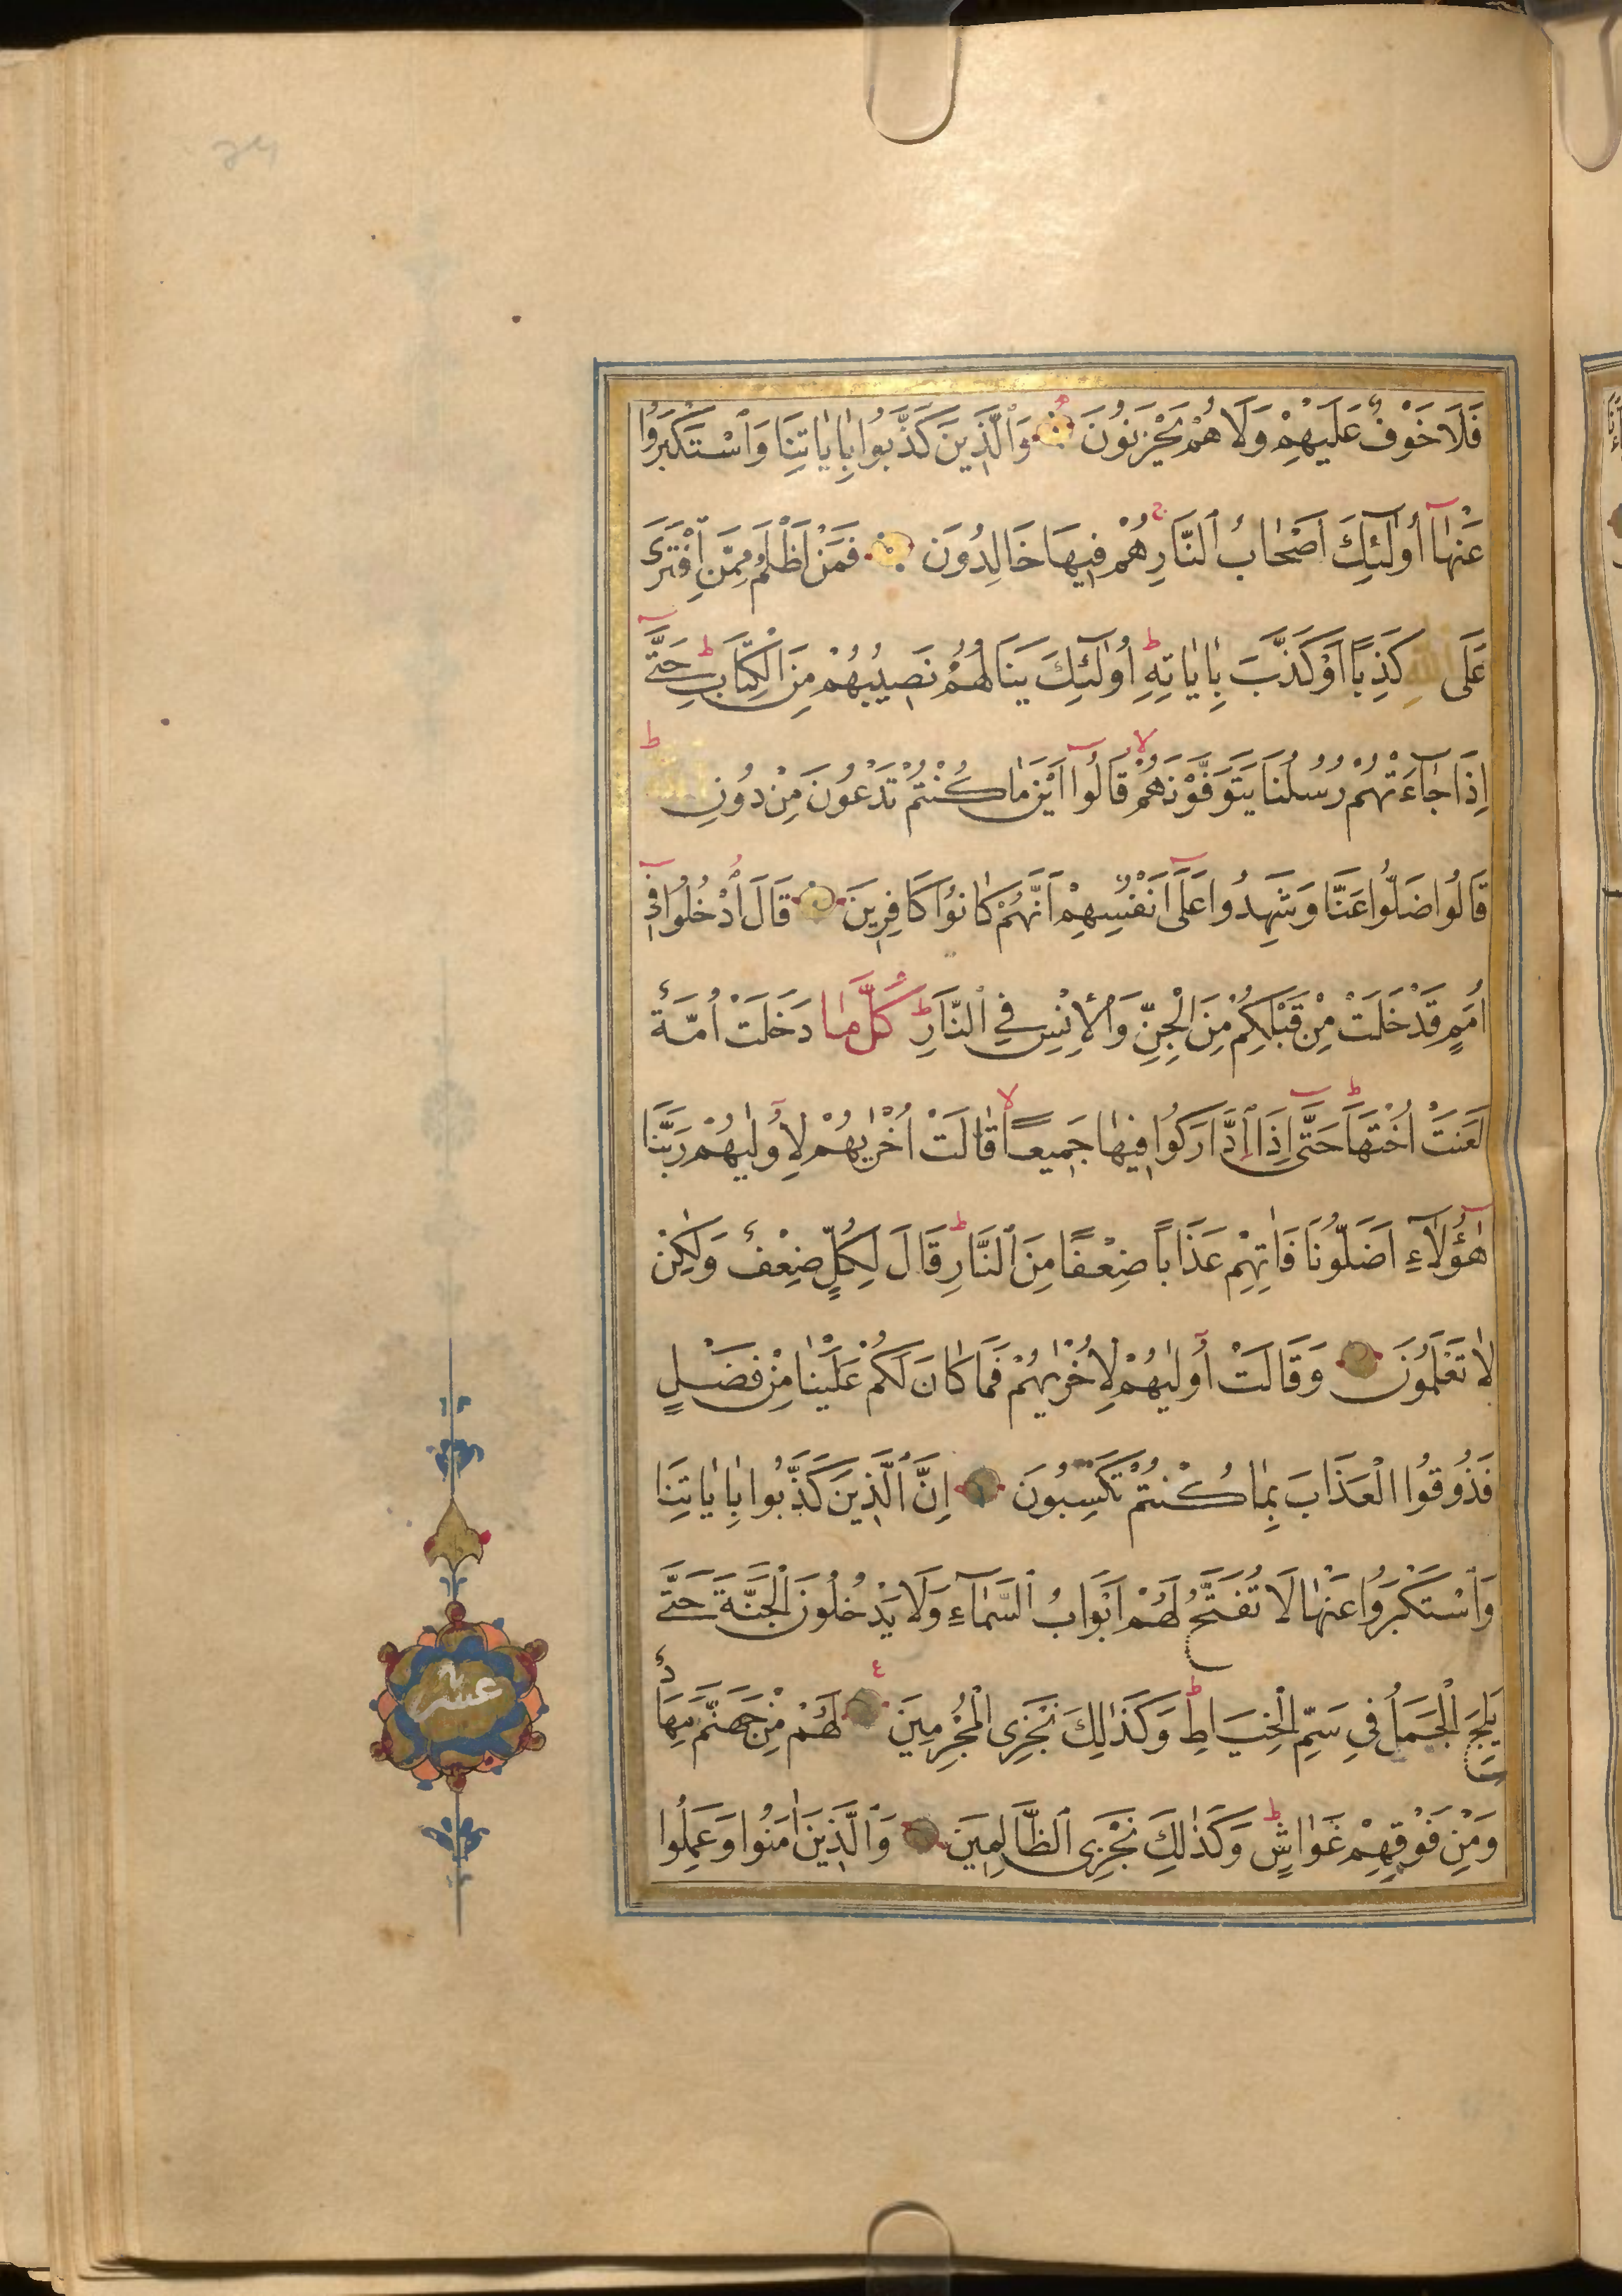 فَلَا خَوْفٌ عَلَيْهِمْ وَلَا هُمْ يَحْزَنُونَ وَٱلَّذِينَ كَذَّبُوا بِاٰيَاتِنَا وَٱسْتَكْبَرُوا
عَنْهَا أُولٰٓئِكَ اَصْحَابُ ٱلنَّارِ هُمْ فِيهَا خَالِدُونَ فَمَنْ اَظْلَمُ مِمَّنِ ٱفْتَرٰى
عَلَى اللهِ كَذِبًا اَوْ كَذَّبَ بِاٰيَاتِهِ اُولٰٓئِكَ يَنَالُهُمْ نَصِيبُهُمْ مِنَ الْكِتَابِ حَتَّى
اِذَا جَاءَتْهُمْ رُسُلُنَا يَتَوَفَّوْنَهُمْ قَالُوا اَيْنَ مَا كُنْتُمْ تَدْعُونَ مِنْ دُونِ اللهِ
قَالُوا ضَلُّوا عَنَّا وَشَهِدُوا عَلَى اَنْفُسِهِمْ اَنَّهُمْ كَانُوا كَافِرِينَ قَالَ ٱدْخُلُوا فِي
اُمَمٍ قَدْ خَلَتْ مِنْ قَبْلِكُمْ مِنَ الْجِنِّ وَالْاِنْسِ فِي ٱلنَّارِ كُلَّمَا دَخَلَتْ اُمَّةٌ
لَعَنَتْ اُخْتَهَا حَتَّى اِذَا ٱدَّارَكُوا فِيهَا جَمِيعًا قَالَتْ اُخْرٰيهُمْ لِاُولٰيهُمْ رَبَّنَا
هٰٓؤُلَاءِ اَضَلُّونَا فَاٰتِهِمْ عَذَابًا ضِعْفًا مِنَ ٱلنَّارِ قَالَ لِكُلٍّ ضِعْفٌ وَلٰكِنْ
لَا تَعْلَمُونَ وَقَالَتْ اُولٰيهُمْ لِاُخْرٰيهُمْ فَمَا كَانَ لَكُمْ عَلَيْنَا مِنْ فَضْلٍ
فَذُوقُوا الْعَذَابَ بِمَا كُنْتُمْ تَكْسِبُونَ اِنَّ ٱلَّذِينَ كَذَّبُوا بِاٰيَاتِنَا
وَٱسْتَكْبَرُوا عَنْهَا لَا تُفَتَّحُ لَهُمْ اَبْوَابُ ٱلسَّمَاءِ وَلَا يَدْخُلُونَ الْجَنَّةَ حَتَّى
يَلِجَ الْجَمَلُ فِي سَمِّ الْخِيَاطِ وَكَذٰلِكَ نَجْزِي الْمُجْرِمِينَ لَهُمْ مِنْ جَهَنَّمَ مِهَادٌ
وَمِنْ فَوْقِهِمْ غَوَاشٍ وَكَذٰلِكَ نَجْزِي ٱلظَّالِمِينَ وَٱلَّذِينَ اٰمَنُوا وَعَمِلُوا
عشر